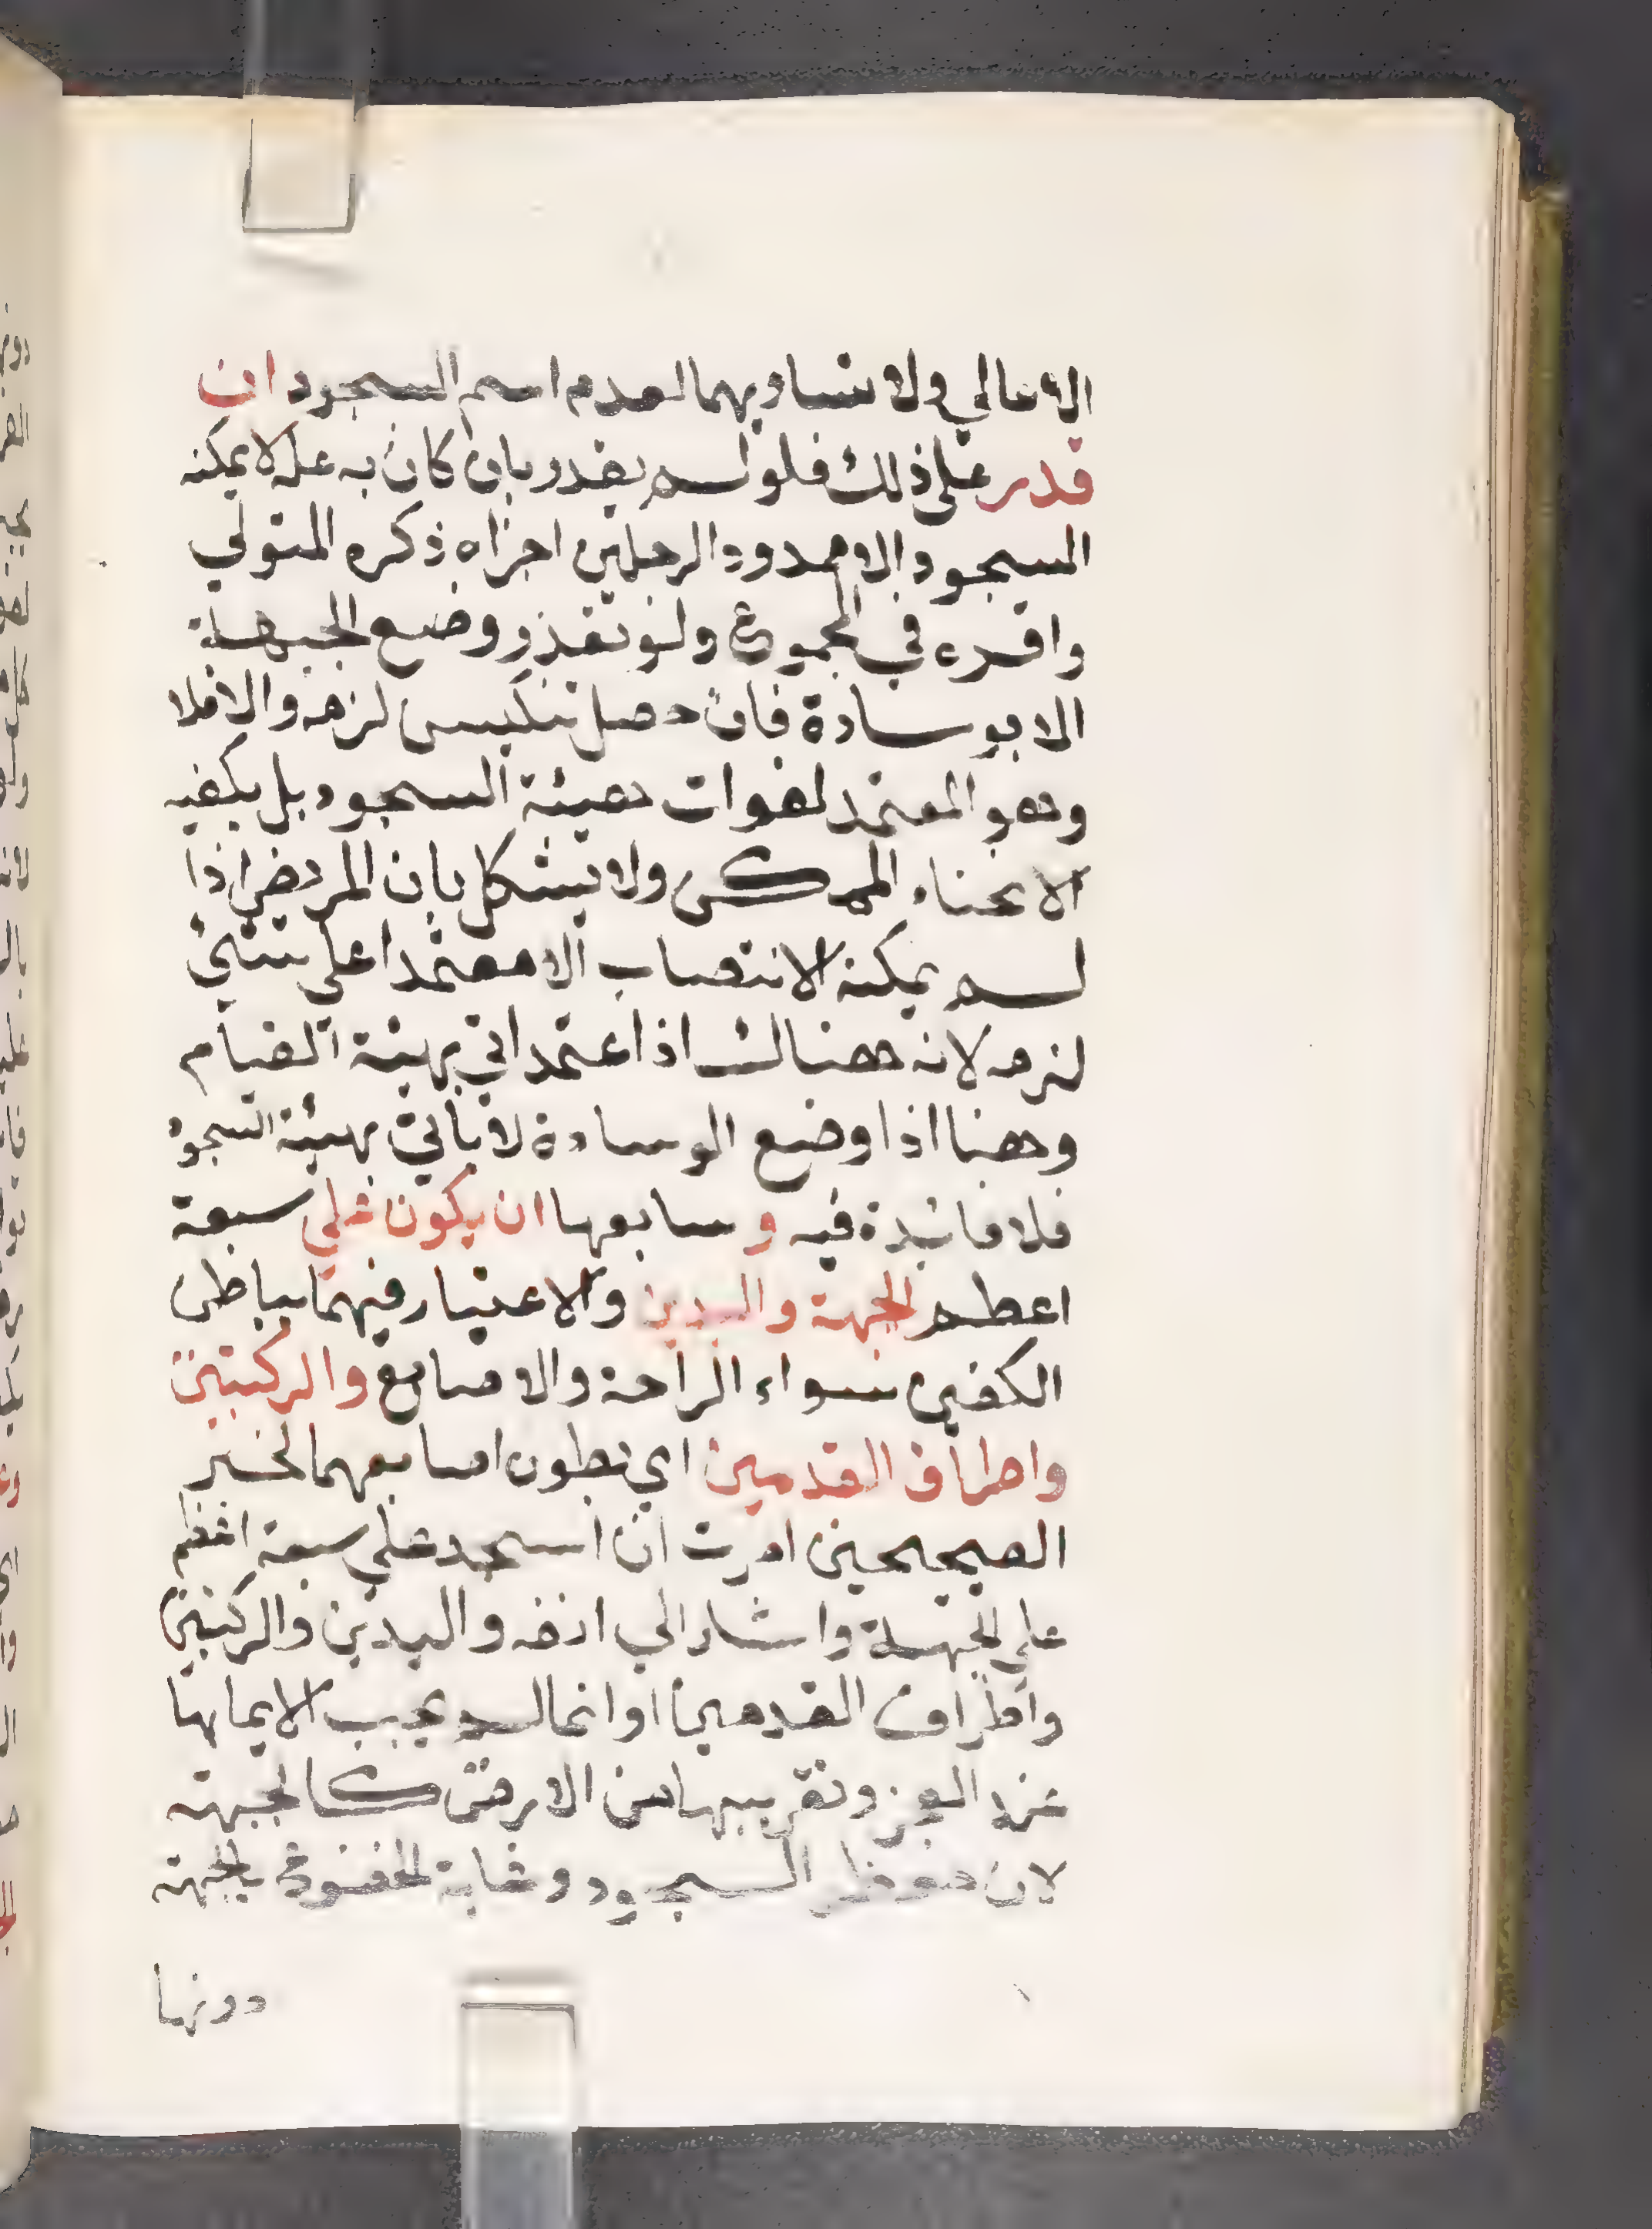 الاعالي ولا تساويهما لعدم اسم السجود ان
قدر على ذلك فلو لم يقدر بان كان به علة لا يمكنه
السجود الا بمدود الرجلين اجزاه ذكره المتولي
واقره في المجموع ولو تعذر وضع الجبهة
الا بوسادة فان حصل تنكيس لزمه والا فلا
وهو المعتمد لفوات هيئة السجود بل يكفيه
الانحناء الممكن ولا يشكل بان المريض اذا
لم يمكنه الانتصاب الا معتمدا على شئ
لزمه لانه هناك اذا اعتمد اتي بهيئة القيام
وهنا اذا وضع الوسادة لا ياتي بهيئة السجود
فلا فائدة فيه و سابعها ان يكون على سبعة
اعظم الجبهة واليدين والاعتبار فيهما بباطن
الكفين سواء الراحة والاصابع والركبتين
واطراف القدمين اي بطون اصابعهما لخبر
الصحيحين امرت ان اسجد على سبعة اعظم
على الجبهة واشار الي انفه واليدين والركبتين
واطراف القدمين او انما لم يجب الايما بها
عند العجز وتقريبها من الارض كالجبهة
لان معظم السجود وغاية الخضوع بالجبهة
دونها